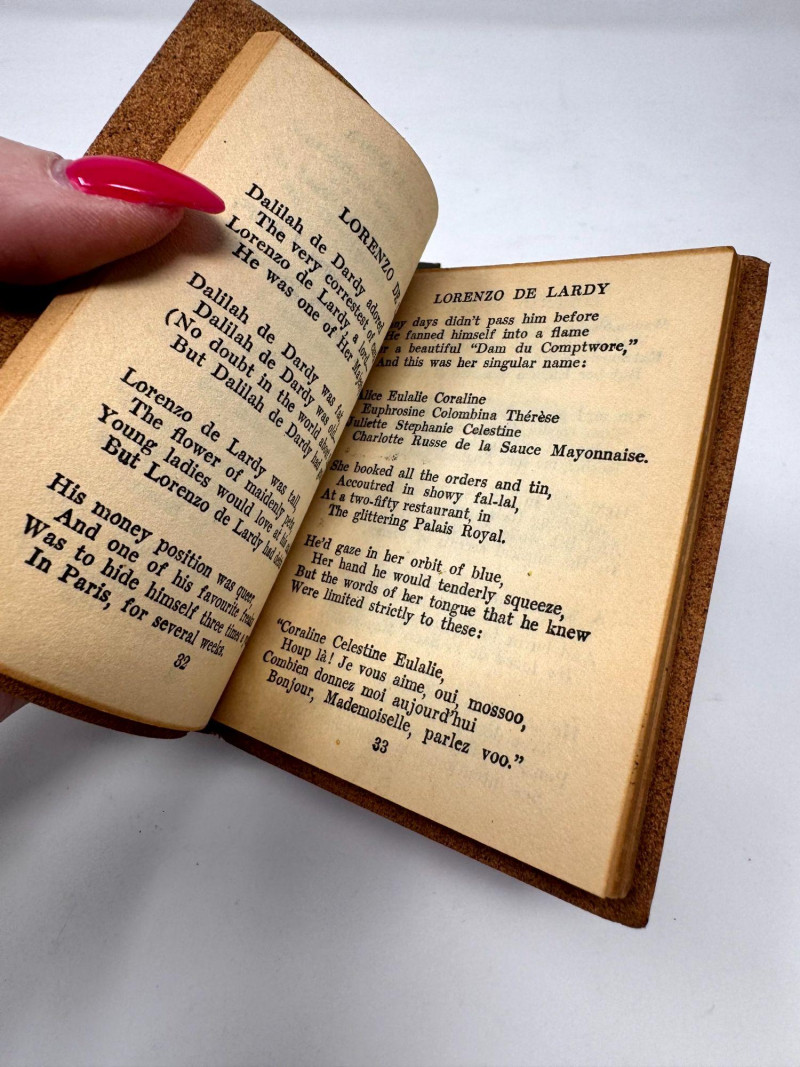 LORENZO DE
Dalilah de Dardy adored
The very correctest of
Lorenzo de Lardy, a lord,
He was one of Her
Dalilah de Dardy was fat,
Dalilah de Dardy was old,
(No doubt in the world about
But Dalilah de Dardy had
Lorenzo de Lardy was tall,
The flower of maidenly pets
Young ladies would love at his
But Lorenzo de Lardy had
His money position was queer,
And one of his favourite
Was to hide himself three times a
In Paris, for several weeks.
32
LORENZO DE LARDY
days didn't pass him before
He fanned himself into a flame
a beautiful "Dam du Comptwore,"
And this was her singular name:
Alice Eulalie Coraline
Euphrosine Colombina Thérèse
Juliette Stephanie Celestine
Charlotte Russe de la Sauce Mayonnaise.
She booked all the orders and tin,
Accoutred in showy fal-lal,
At a two-fifty restaurant, in
The glittering Palais Royal.
He'd gaze in her orbit of blue,
Her hand he would tenderly squeeze,
But the words of her tongue that he knew
Were limited strictly to these:
"Coraline Celestine Eulalie,
Houp là! Je vous aime, oui, mossoo,
Combien donnez moi aujourd'hui
Bonjour, Mademoiselle, parlez voo."
33